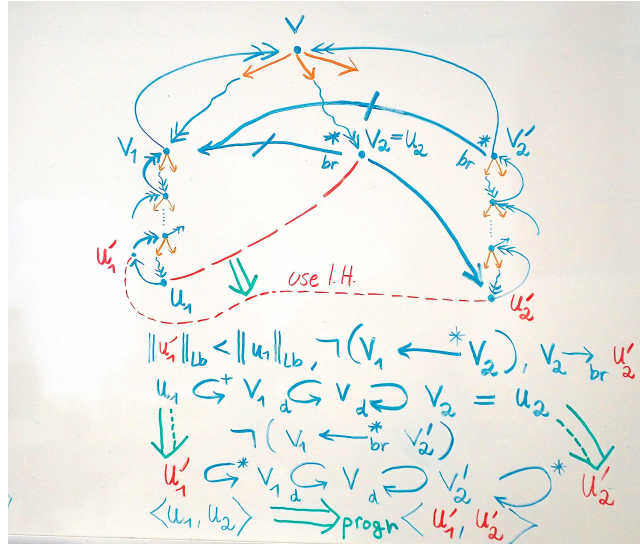 V
V₁ * br V₂ = u₂ * br V₂′
u₁′
u₁ use I.H. u₂′
‖u₁′‖Lb < ‖u₁‖Lb, ¬(V₁ ⟵* V₂), V₂ →br u₂′
u₁ ↻⁺ V₁ d↻ V d↻ V₂ = u₂
¬(V₁ ⟵*br V₂′)
u₁′ ↻* V₁ d↻ V d↻ V₂′ ↻* u₂′
⟨u₁, u₂⟩ ⟹progn ⟨u₁′, u₂′⟩